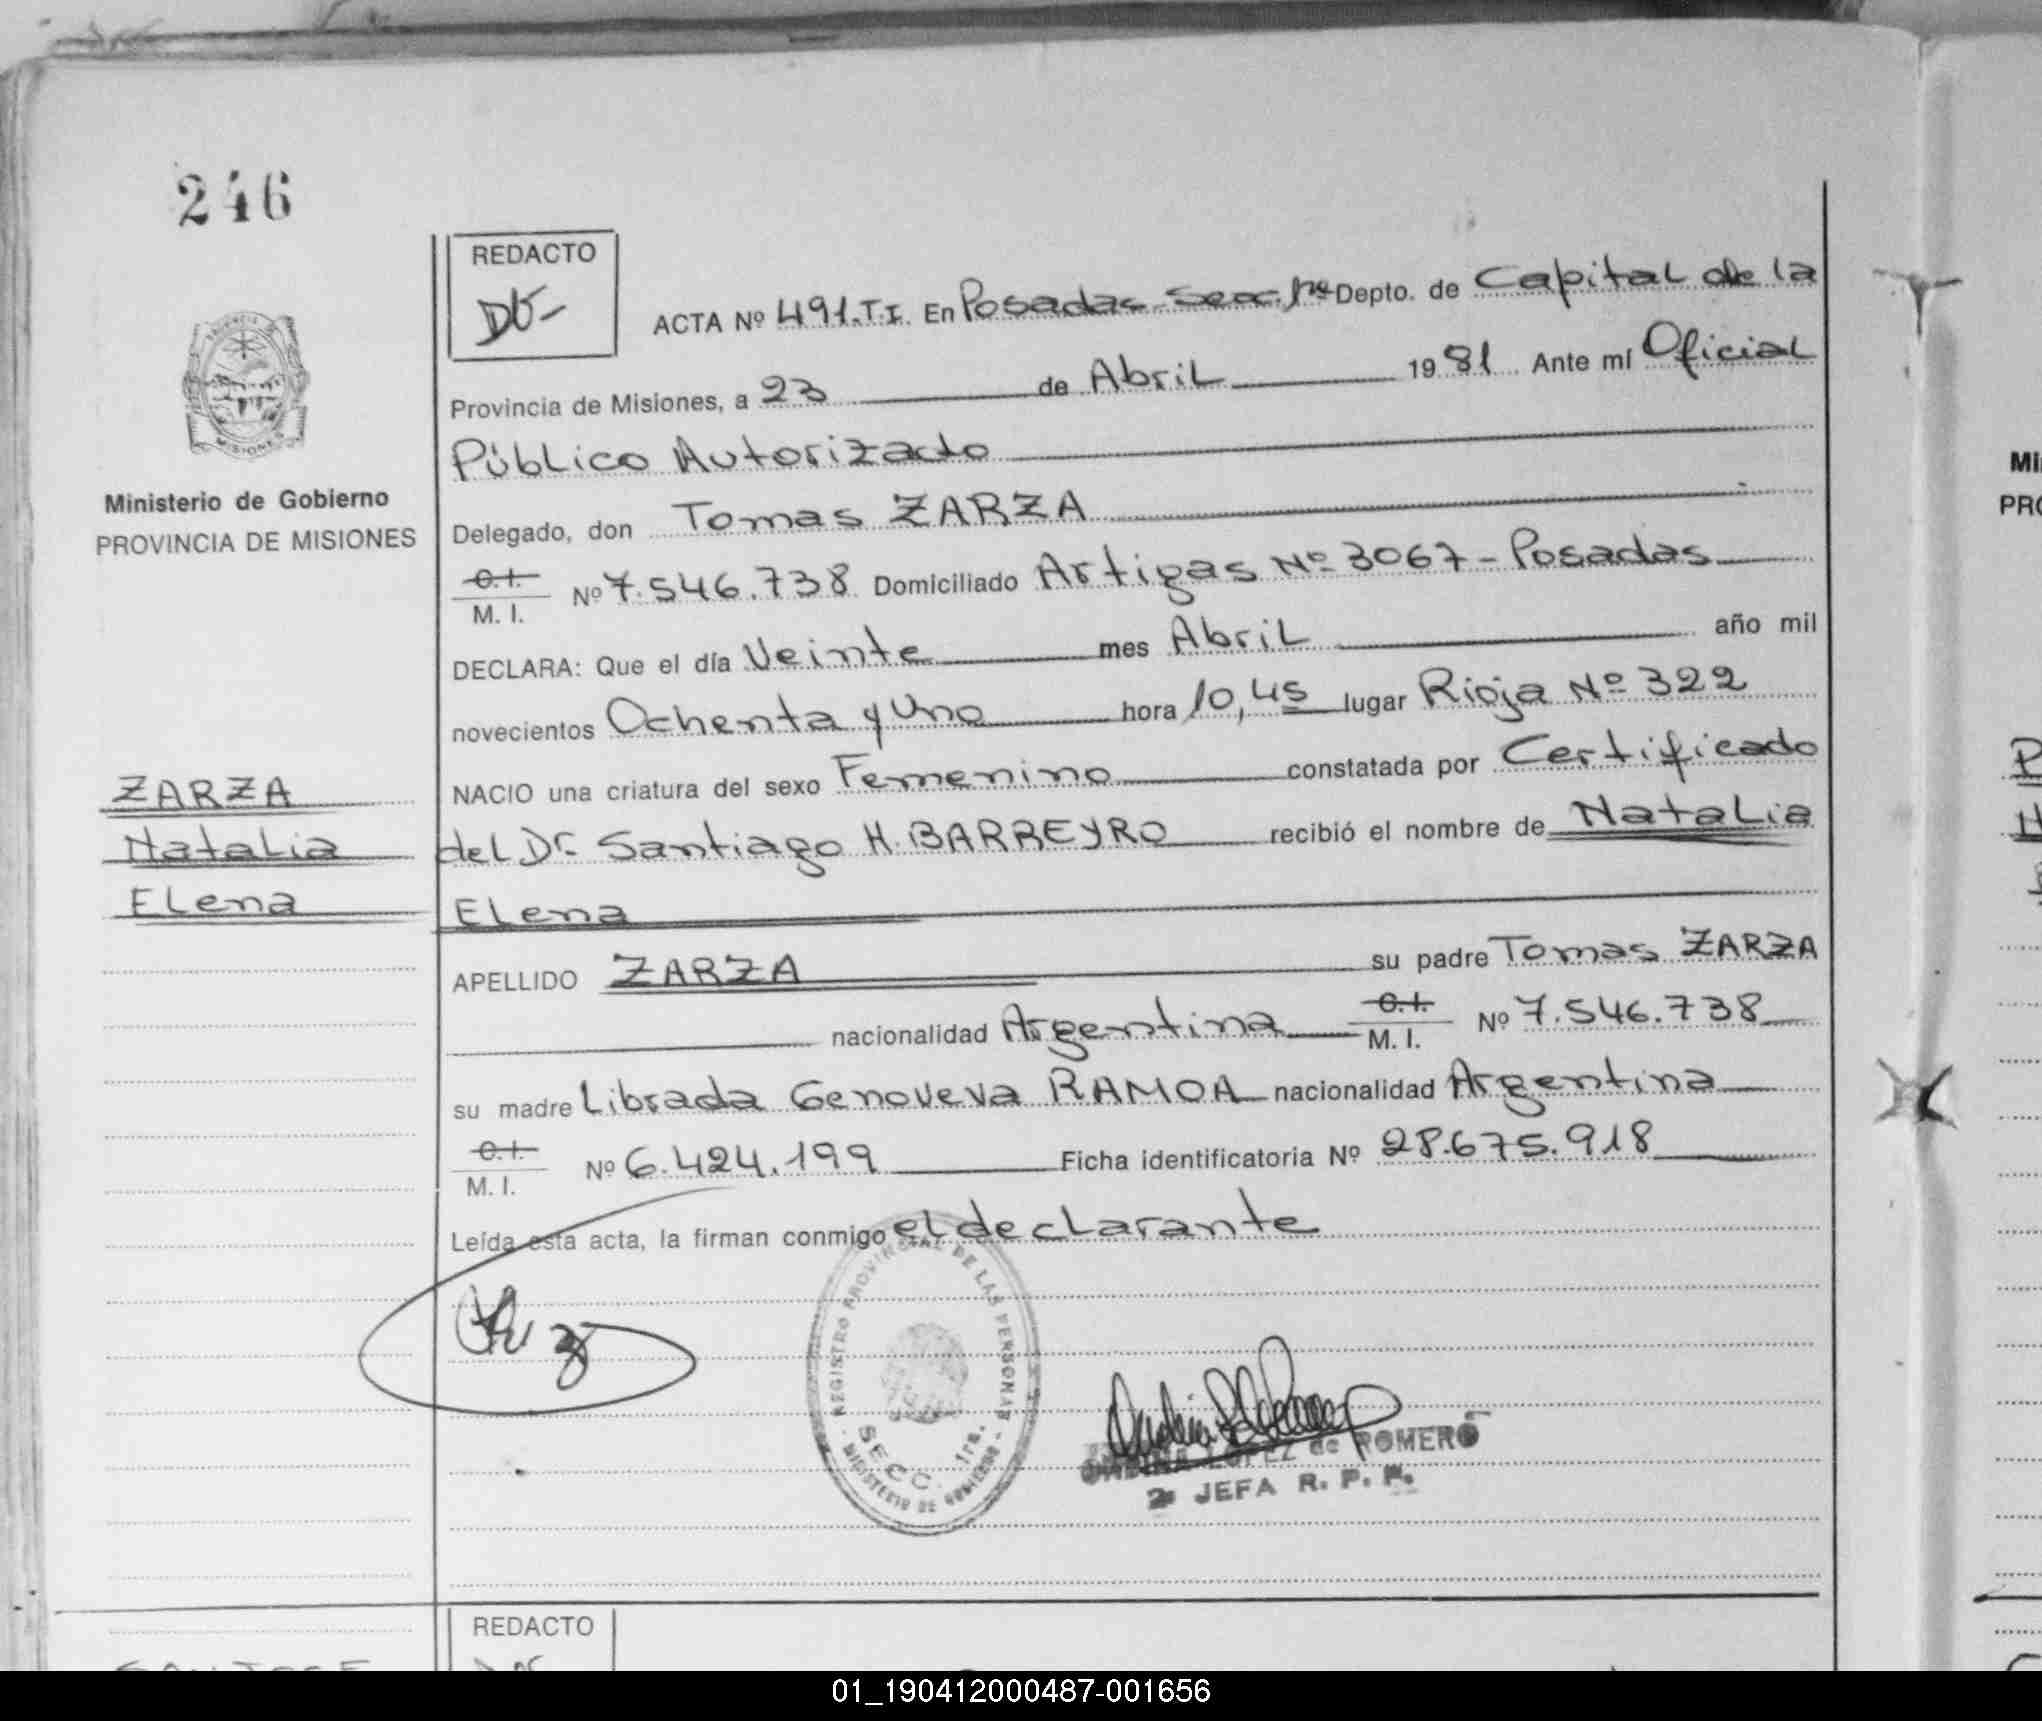 246
REDACTO
ACTA Nº 491.T.I. En Posadas Secc. 1ra Depto. de Capital de la
Provincia de Misiones, a 23 de Abril 1981 Ante mí Oficial
Público Autorizado
Ministerio de Gobierno
PROVINCIA DE MISIONES
Delegado, don Tomas ZARZA
C.I.
M. I. Nº 7.546.738 Domiciliado Artigas Nº 3067 - Posadas
DECLARA: Que el día Veinte mes Abril año mil
novecientos Ochenta y Uno hora 10,45 lugar Rioja Nº 322
NACIO una criatura del sexo Femenino constatada por Certificado
ZARZA
Natalia
Elena
del Dr. Santiago H. BARREYRO recibió el nombre de Natalia
Elena
APELLIDO ZARZA su padre Tomas ZARZA
nacionalidad Argentina C.I. M. I. Nº 7.546.738
su madre Librada Genoveva RAMOA nacionalidad Argentina
C.I.
M. I. Nº 6.424.199 Ficha identificatoria Nº 28.675.918
Leída esta acta, la firman conmigo el declarante
REGISTRO PROVINCIAL DE LAS PERSONAS
SECC. 1ra.
MINISTERIO DE GOBIERNO
LOPEZ de ROMERO
2ª JEFA R. P. P.
REDACTO
01_190412000487-001656